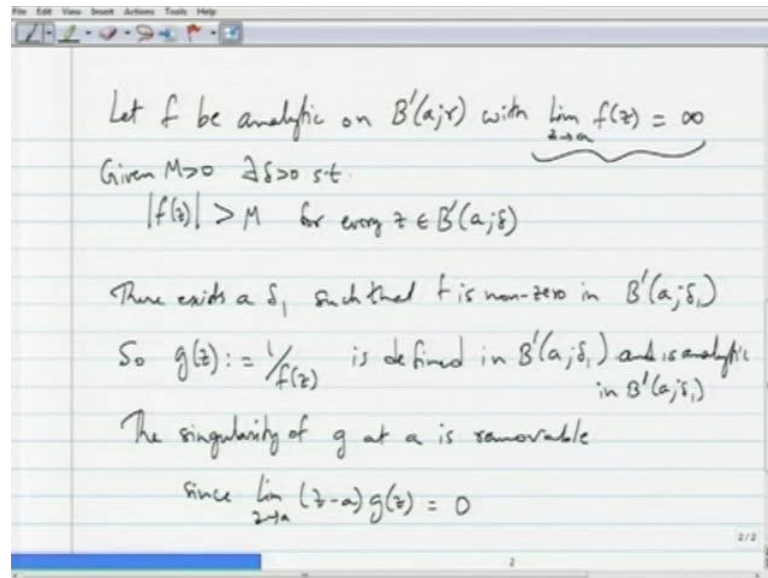 File Edit View Insert Actions Tools Help
Let f be analytic on B'(a;r) with lim f(z) = ∞
z→a
Given M>0 ∃δ>0 s.t.
|f(z)| > M for every z ∈ B'(a;δ)
There exists a δ₁ such that f is non-zero in B'(a;δ₁)
So g(z) := 1/f(z) is defined in B'(a;δ₁) and is analytic
in B'(a;δ₁)
The singularity of g at a is removable
since lim (z-a) g(z) = 0
z→a
2/2
2